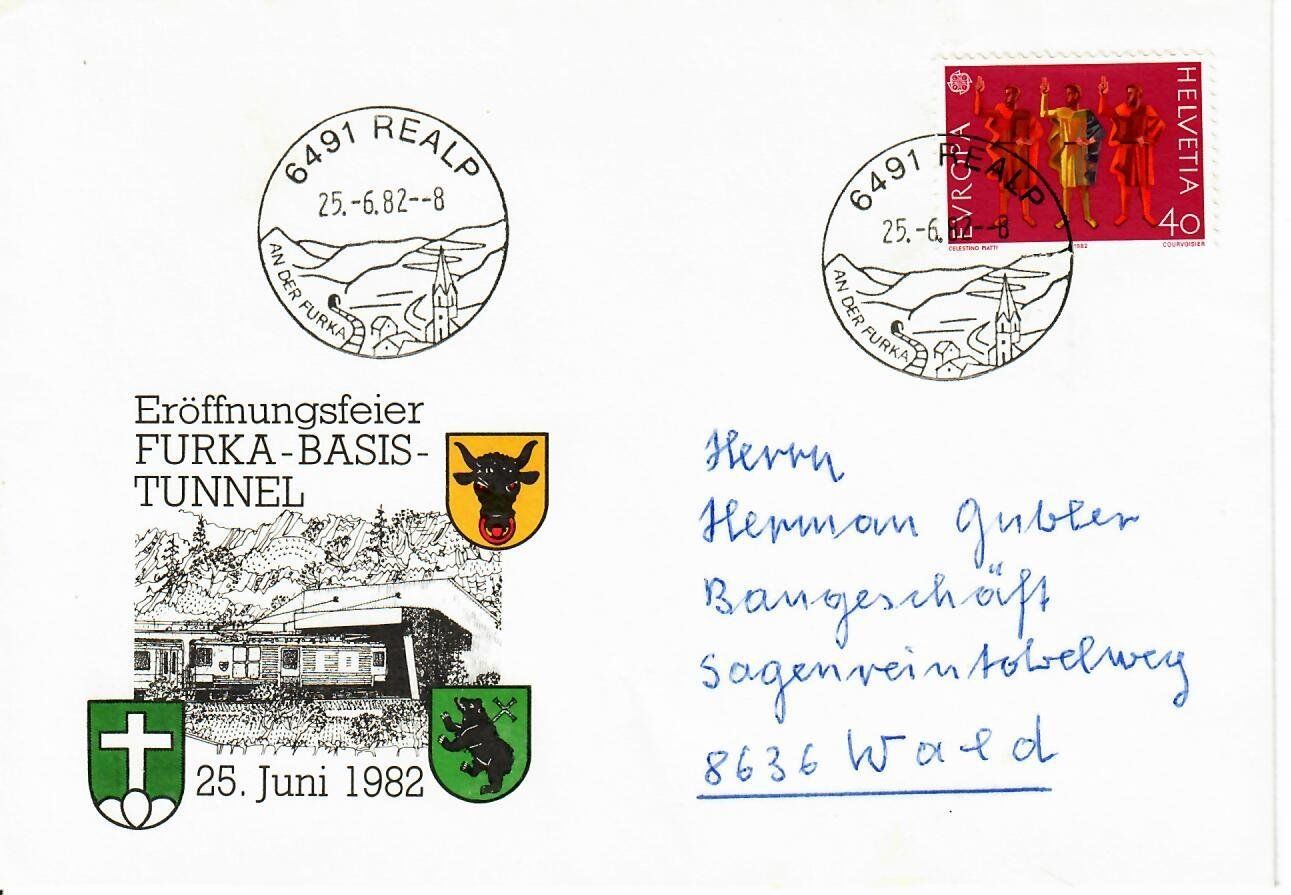 6491 REALP
25.-6.82--8
AN DER FURKA
EVROPA
HELVETIA
40
CELESTINO PIATTI
1982
COURVOISIER
6491 REALP
25.-6.82--8
AN DER FURKA
Eröffnungsfeier
FURKA-BASIS-
TUNNEL
25. Juni 1982
Herrn
Herman Gubler
Baugeschäft
Sagenreintobelweg
8636 Wald